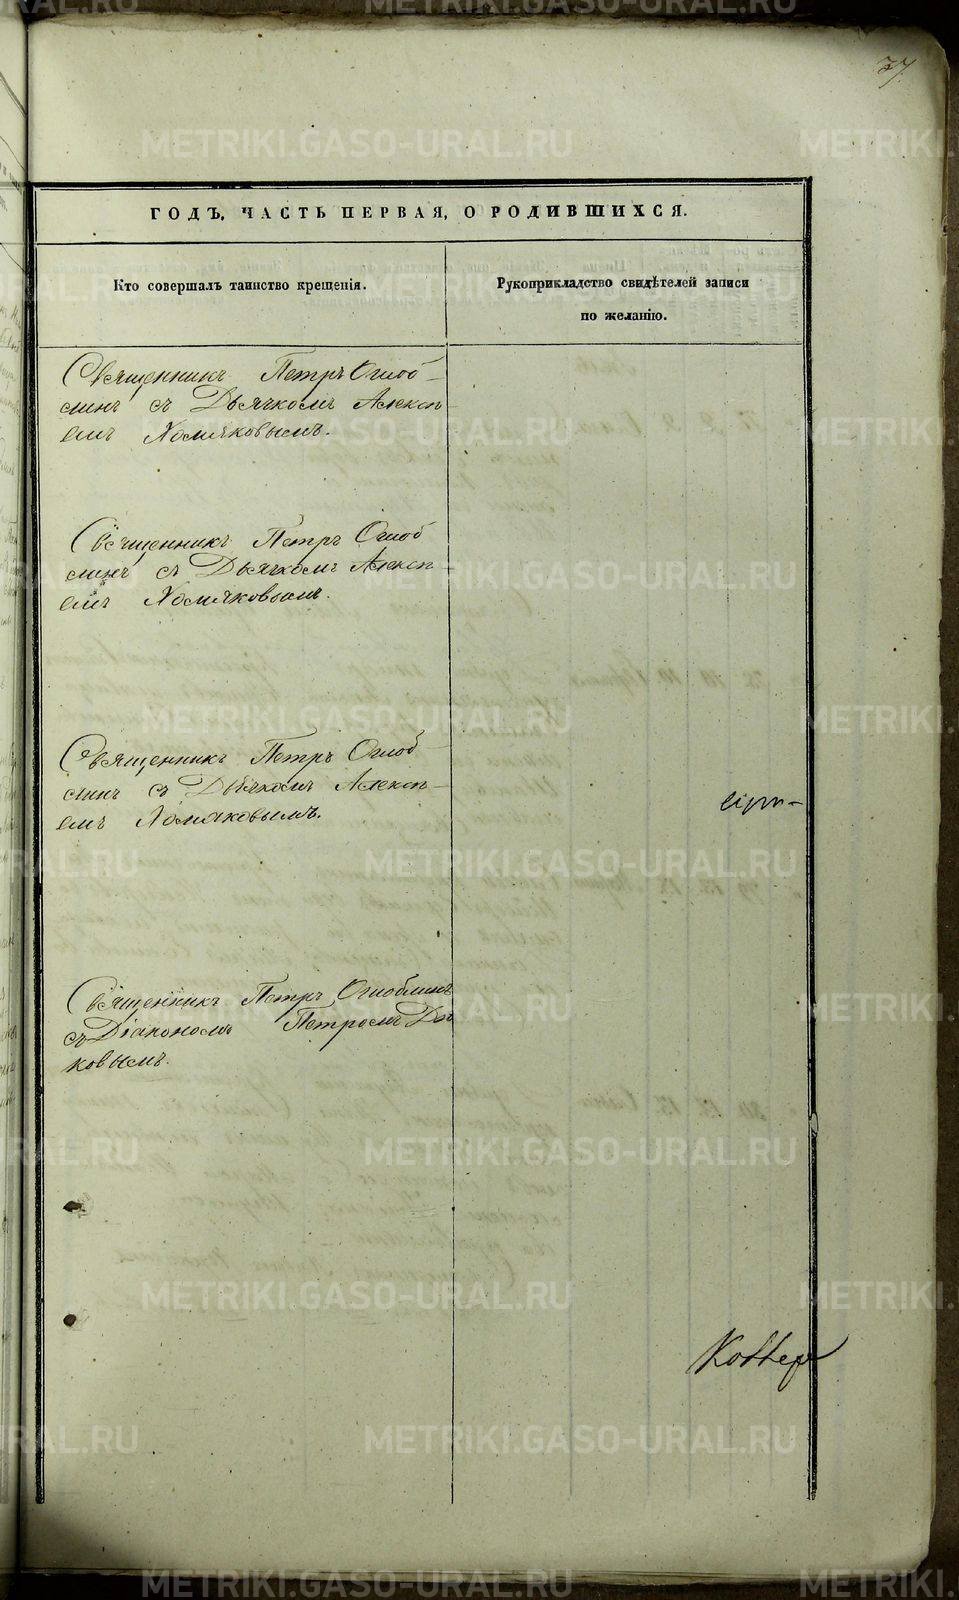 37.
ГОДЪ, ЧАСТЬ ПЕРВАЯ, О РОДИВШИХСЯ.
Кто совершалъ таинство крещенія.
Рукоприкладство свидѣтелей записи
по желанію.
Священникъ Петръ Оглоб-
линъ съ Дьячкомъ Алексѣ-
емъ Хомяковымъ.
Священникъ Петръ Оглоб
линъ съ Дьячкомъ Алексѣ-
емъ Хомяковымъ.
Священникъ Петръ Оглоб-
линъ съ Дьячкомъ Алексѣ-
емъ Хомяковымъ.
Священникъ Петръ Оглоблинъ
съ Діакономъ Петромъ
ковымъ.
METRIKI.GASO-URAL.RU